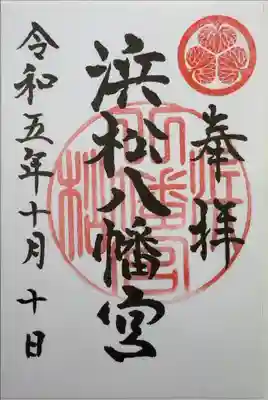 奉拝
浜松八幡宮
令和五年十月十日